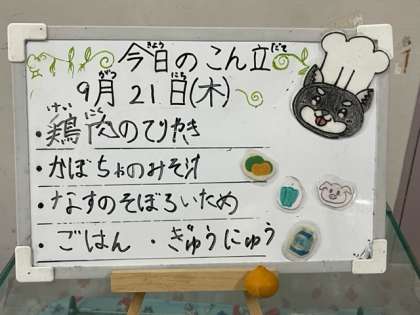 今日のこん立
9月21日(木)
・鶏肉のてりやき
・かぼちゃのみそ汁
・なすのそぼろいため
・ごはん ・ぎゅうにゅう